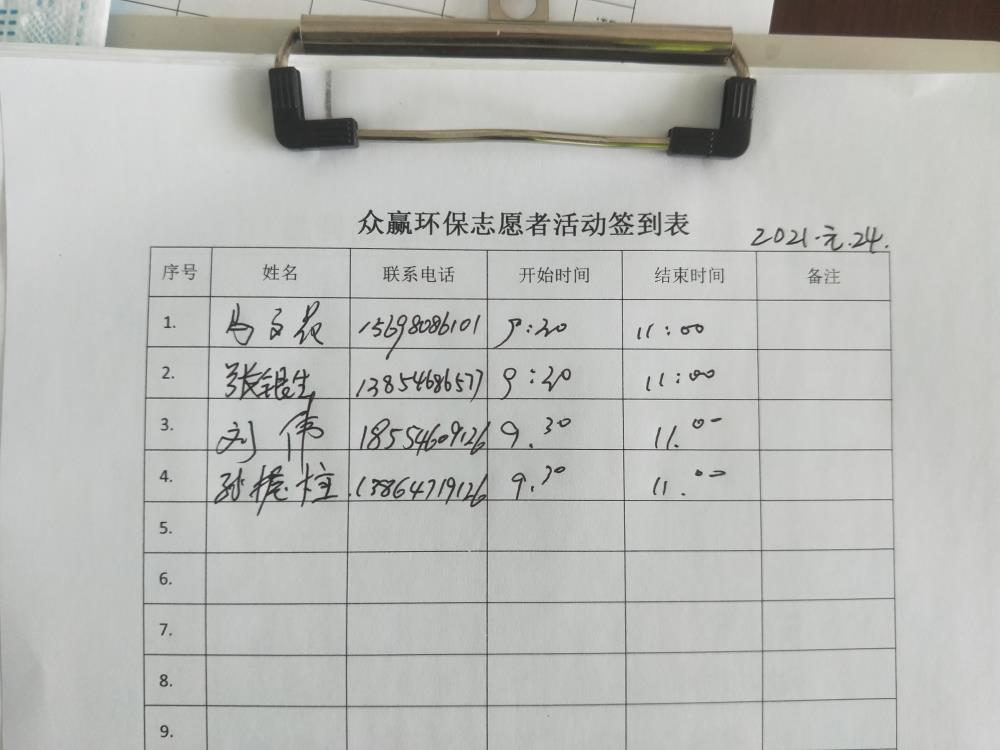 众赢环保志愿者活动签到表
2021.元.24.
序号 姓名 联系电话 开始时间 结束时间 备注
1. 马文 15698086101 9:20 11:00
2. 张银生 13854686577 9:20 11:00
3. 刘伟 18554609126 9.30 11.00
4. 孙 柱 13864719126 9.30 11.00
5.
6.
7.
8.
9.